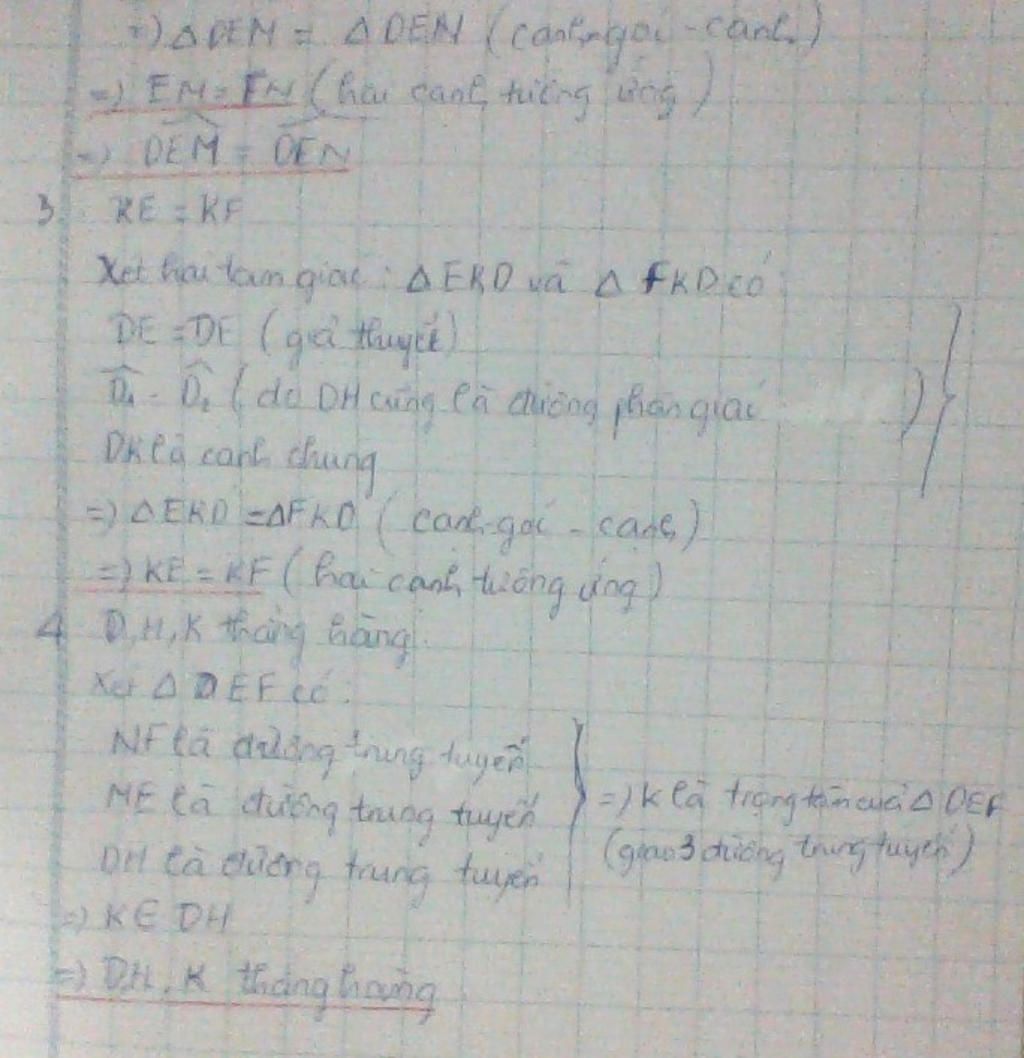 =) △ DEM = △ DEN (cạnh-góc-cạnh)
=) EM = FN (hai cạnh tương ứng)
=) DEM = DEN
3. KE = KF
Xét hai tam giác : △ EKD và △ FKD có :
DE = DE (giả thuyết)
D₁ = D₂ (do DH cũng là đường phân giác )
DK là cạnh chung
=) △ EKD = △ FKD (cạnh-góc-cạnh)
=) KE = KF (hai cạnh tương ứng)
4 D, H, K thẳng hàng.
Xét △ DEF có :
NF là đường trung tuyến
ME là đường trung tuyến
DH là đường trung tuyến
=) K là trọng tâm của △ DEF
(giao 3 đường trung tuyến)
=) K ∈ DH
=) D,H, K thẳng hàng